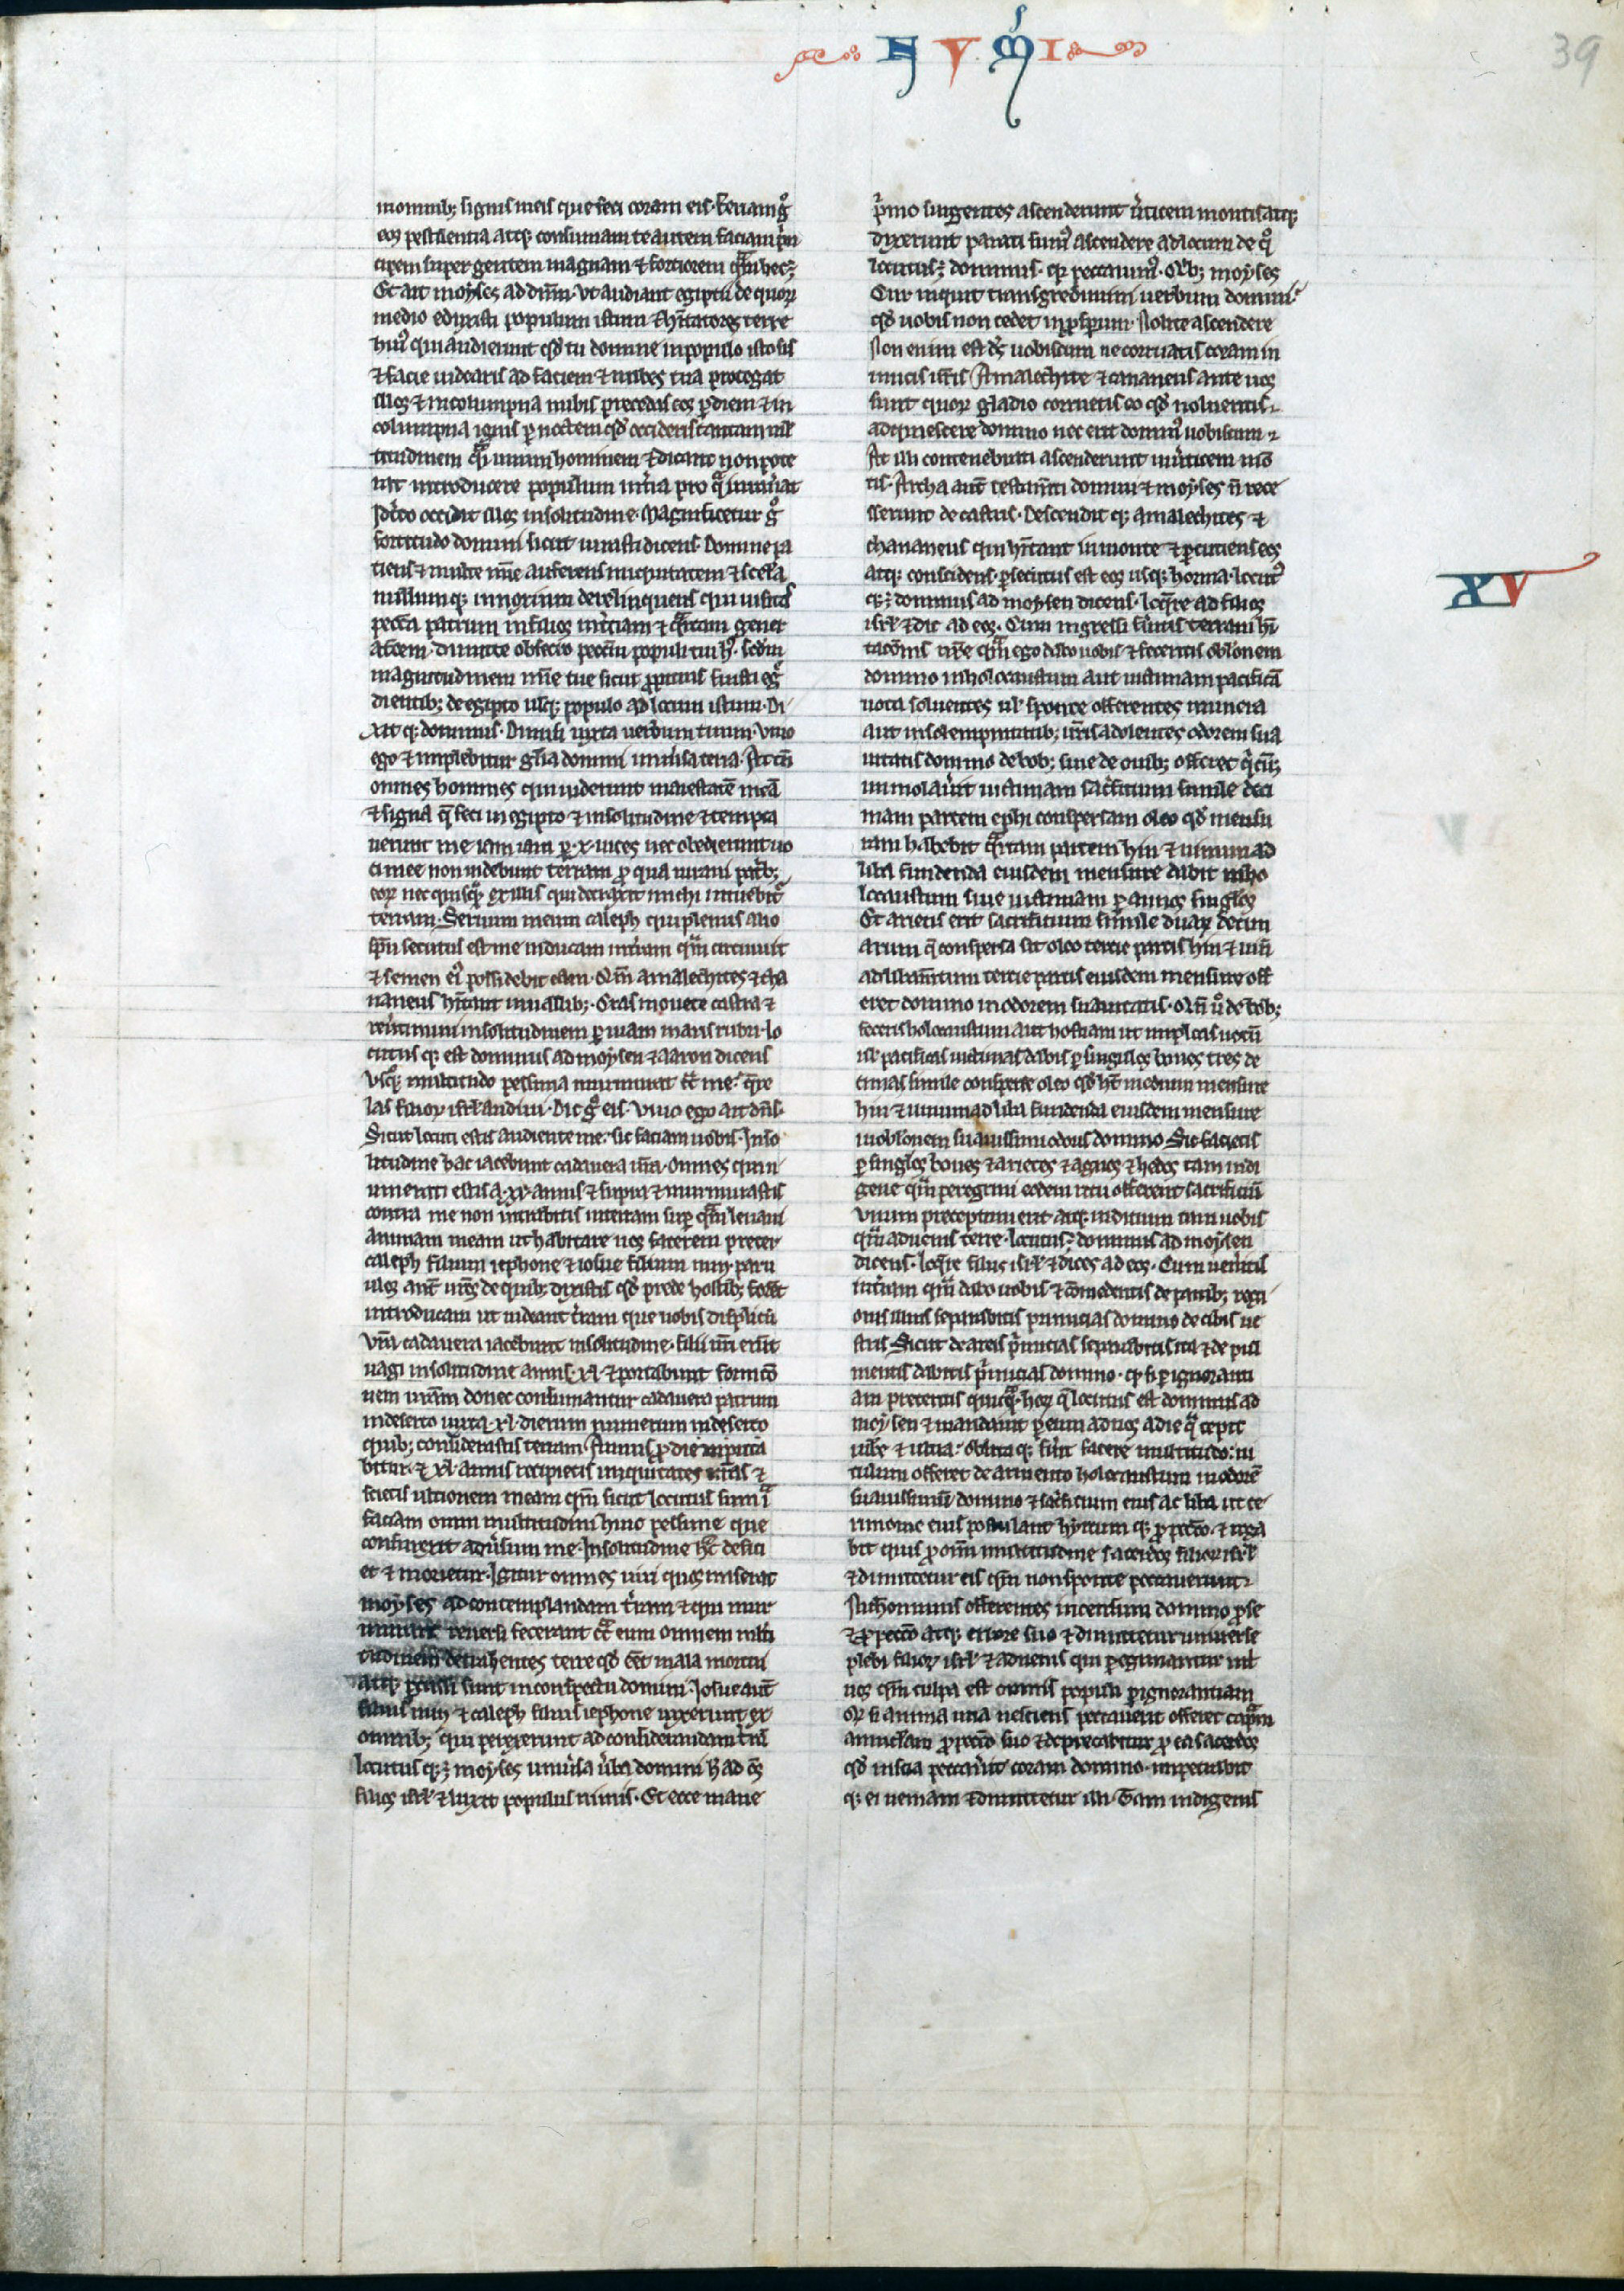 NVMERI
39
mominib; signis meis que feci coram eis. feriam g̊
eos pestilentia atq; consumam te autem faciam pͥn
cipem super gentem magnam ⁊ fortiorem qͣm hec ÷
Et ait moyses ad dn̄m. Vt audiant egiptii de quoꝝ
medio eduxisti populum istum ⁊ hītatores terre
huiꝰ qui audierunt qd̄ tu domine in populo isto sis
⁊ facie videaris ad faciem ⁊ nubes tua protegat
illos ⁊ in columpna nubis precedas eos ꝑ diem ⁊ in
columpna ignis ꝑ noctem qd̄ occideris tantam ml̄
titudinem qͣi unum hominem ⁊ dicant non pote
rat introducere populum in t̄ra pro qͣ iurauat
Idcͦo occidit illos in solitudine. Magnificetur g̊
fortitudo domini sicut iurasti dicens. Domine pa
tiens ⁊ multe mīe auferens iniquitatem ⁊ scelͣa
nullumq; innoxium derelinquens qui uisitas
pccͣa patrum in filios in tͥciam ⁊ qͣrtam gener
atōem. dimitte obsecro pccm̄ populi tui hꝰ. scd̄m
magnitudinem mīe tue sicut ꝓpitius fuisti eg̊
dientib; de egipto usq; populo ad locum istum. Di
xit q; dominus. Dimisi iuxta uerbum tuum. Viuo
ego ⁊ implebitur glīa domini uniūsa terra. At tn̄
omnes homines qui uiderunt maiestatē meā
⁊ signa q̄ feci in egipto ⁊ in solitudine ⁊ tempta
uerunt me iam iam ꝑ .x. uices nec obedierunt uo
ci mee non uidebunt terram ꝓ qua iuraui patͥb;
eoꝝ nec quisqͣ ex illis qui detraxit michi intuebitᷣ
terram. Seruum meum caleph qui plenus alio
sp̄u secutus est me inducam in t̄ram qͣm circuiuit
⁊ semen eiꝰ possidebit eam. Qm̄ amalechites ⁊ cha
naneus hītant in uallib;. Cras mouete castra ⁊
reūtimini in solitudinem ꝑ uiam maris rubri. lo
cutus q; est dominus ad moysen ⁊ aaron dicens
Vsq; multitudo pessima murmurat cͣ me. qͣre
las filioꝝ isrl̄ audiui. Dic g̊ eis. Viuo ego ait dn̄s.
Sicut locuti estis audiente me. sic faciam uobis. In so
litudine hac iacebunt cadauera ur̄a. omnes qui nu
umerati estis a .xx. annis ⁊ supra ⁊ murmurastis
contra me non intrabitis in terram suꝑ qͣm leuaui
animam meam ut habitare uos facerem preter
caleph filium iephone ⁊ iosue filium nun. paru
ulos aut̄ ur̄os de quib; dixistis qd̄ prede hostib; foret
introducam ut uideant t̄ram que uobis displicuit
Vr̄a cadauera iacebunt in solitudine. filii ur̄i erūt
uagi in solitudine annis .xl. ⁊ portabunt fornicō
nem ur̄am donec consumantur cadauera patrum
in deserto iuxta .xl. dierum numerum in deserto
quib; considerastis terram Annus ꝓ die inputa
bitur. ⁊ xl. annis recipietis iniquitates ur̄as ⁊
scietis ultionem meam qm̄ sicut locutus sum iͣ
faciam omni multitudini huic pessime que
consurrexit aduūsum me. In solitudine hͨ defici
et ⁊ morietur. Igitur omnes uiri quos miserat
moyses ad contemplandam t̄ram ⁊ qui mur
murare reuersi fecerant cͣ eum omnem mlti
tudinem detrahentes terre qd̄ eēt mala mortui
atq; ꝑcussi sunt in conspectu domini. Iosue aut̄
filius nun ⁊ caleph filius iephone uixerunt ex
omnib; qui perrexerunt ad considerandam t̄rā
locutus q; ÷ moyses uniūsa ūba domini h̄ ad oēs
filios isrl̄ ⁊ luxit populus nimis. Et ecce mane
pͥmo surgentes ascenderunt ūticem montis atq;
dixerunt parati sumꝰ ascendere ad locum de qͦ
locutus ÷ dominus. qꝛ peccauimꝰ. Qͥb; moyses
Cur inquit transgredimini uerbum domini.
qd̄ uobis non cedet in ꝓsperum. Nolite ascendere
Non enim est dn̄s uobiscum ne corruatis coram in
imicis ur̄is Amalechite ⁊ cananeus ante uos
sunt quoꝝ gladio corruetis eo qd̄ nolueritis
adquiescere domino nec erit dominꝰ uobiscum
At illi contenebrati ascenderunt in ūticem mō
tis. Archa aut̄ testam̄ti domini ⁊ moyses n̄ rece
sserunt de castris. Descendit q; amalechites ⁊
chananeus qui hītant in monte ⁊ ꝑcutiens eos
atq; concidens ꝑsecutus est eos usq; horma. locutꝰ
q; ÷ dominus ad moysen dicens. loqͥre ad filios
isrl̄ ⁊ dic ad eos. Cum ingressi fūitis terram hī
tacōnis ur̄e qͣm ego dabo uobis ⁊ feceritis oblōnem
domino in holocaustum aut uictimam pacificā
uota soluentes ul̄ sponte offerentes munera
aut in solempnitatib; ur̄is adolentes odorem sua
uitatis domino de bob; siue de ouib; offeret qͥcūq;
immolaūit uictimam sacͥficium simile deci
mam partem ephi conspersam oleo qd̄ mensu
ram habebit qͣrtam partem hin ⁊ uinum ad
liba fundenda eiusdem mensure dabit in ho
locaustum siue uictimam ꝑ agnos singulos
Et arietis erit sacrificium simile duaꝝ decim
arum q̄ conspersa sit oleo tercie partis hin ⁊ uinū
ad libam̄tum tercie partis eiusdem mensure off
eret domino in odorem suauitatis. Qn̄ ů de bob;
feceris holocaustum aut hostiam ut impleas uotū
ul̄ pacificas uictimas dabis ꝑ singulos boues tres de
cimas simile consperse oleo qd̄ h̄t medium mensure
hin ⁊ uinum ad liba fundenda eiusdem mensure
in oblōnem suauissimi odoris domino Sic facietis
ꝑ singlos boues ⁊ arietes ⁊ agnos ⁊ hedos tam indi
gene qͣm peregrini eodem ritu offerent sacrificiū
Vnum preceptum erit atq; iuditium tam uobis
qͣm aduenis terre. locutus ÷ dominus ad moysen
dicens. loqͥre filiis isrl̄ ⁊ dices ad eos. Cum ueneritis
in t̄ram qͣm dabo uobis ⁊ cōmederitis de panib; regi
onis illius separabitis primicias domino de cibis ue
stris Sicut de areis pͥmicias separabitis ita ⁊ de pul
mentis dabitis pͥmicias domino. qꝛ si ꝑ ignoranti
am preteritis quicqͣ. hoꝝ q̄ locutus est dominus ad
moysen ⁊ mandauit ꝑ eum ad uos a die qͣ cepit
iubere ⁊ ultra. oblita q; fūit facere multitudo. ui
tulum offeret de armento holocaustum in odorē
suauissimū domino ⁊ sacͥficium eius ac liba ut ce
rimonie eius postulant hyrcum q; ꝓ pccō. ⁊ roga
bit quis ꝓ omī multitudine sacerdos filioꝝ isrl̄
⁊ dimittetur eis qm̄ non sponte peccauerunt
Nichominus offerentes incensum domino ꝓ se
⁊ ꝓ pccō atq; errore suo ⁊ dimittetur uniuerse
plebi filioꝝ isrl̄ ⁊ aduenis qui ꝑegrinantur int̄
uos qm̄ culpa est omnis populi ꝑ ignorantiam
Qꝛ si anima una nesciens peccauerit offeret capͣm
anniclam ꝓ pccō suo ⁊ deprecabitur ꝓ ea sacerdos
qd̄ inscia peccaūit coram domino. impetrabit
q; ei ueniam ⁊ dimittetur illi. Tam indigenis
XV